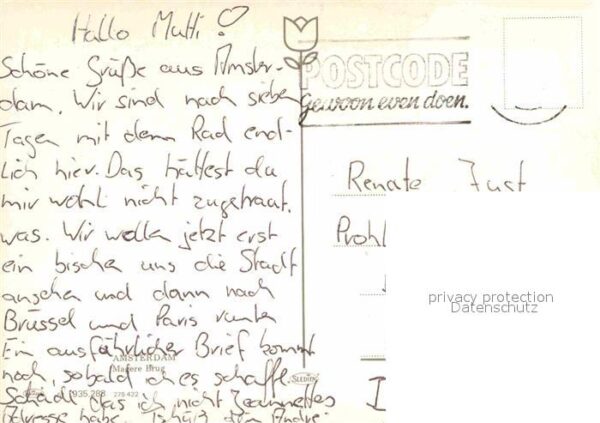 Hallo Mutti!
Schöne Grüße aus Amster-
dam. Wir sind nach sieben
Tagen mit dem Rad end-
lich hier. Das hättest du
mir wohl nicht zugetraut,
was. Wir wollen jetzt erst
ein bischen uns die Stadt
ansehen und dann nach
Brüssel und Paris runter
Ein ausführlicher Brief kommt
noch, sobald ich es schaffe.
Schade das ich nicht Jeannettes
Adresse habe. Tschüß dein André
AMSTERDAM
Magere Brug
935.288 278 422
POSTCODE
Gewoon even doen.
Renate Just
Prohl
privacy protection
Datenschutz